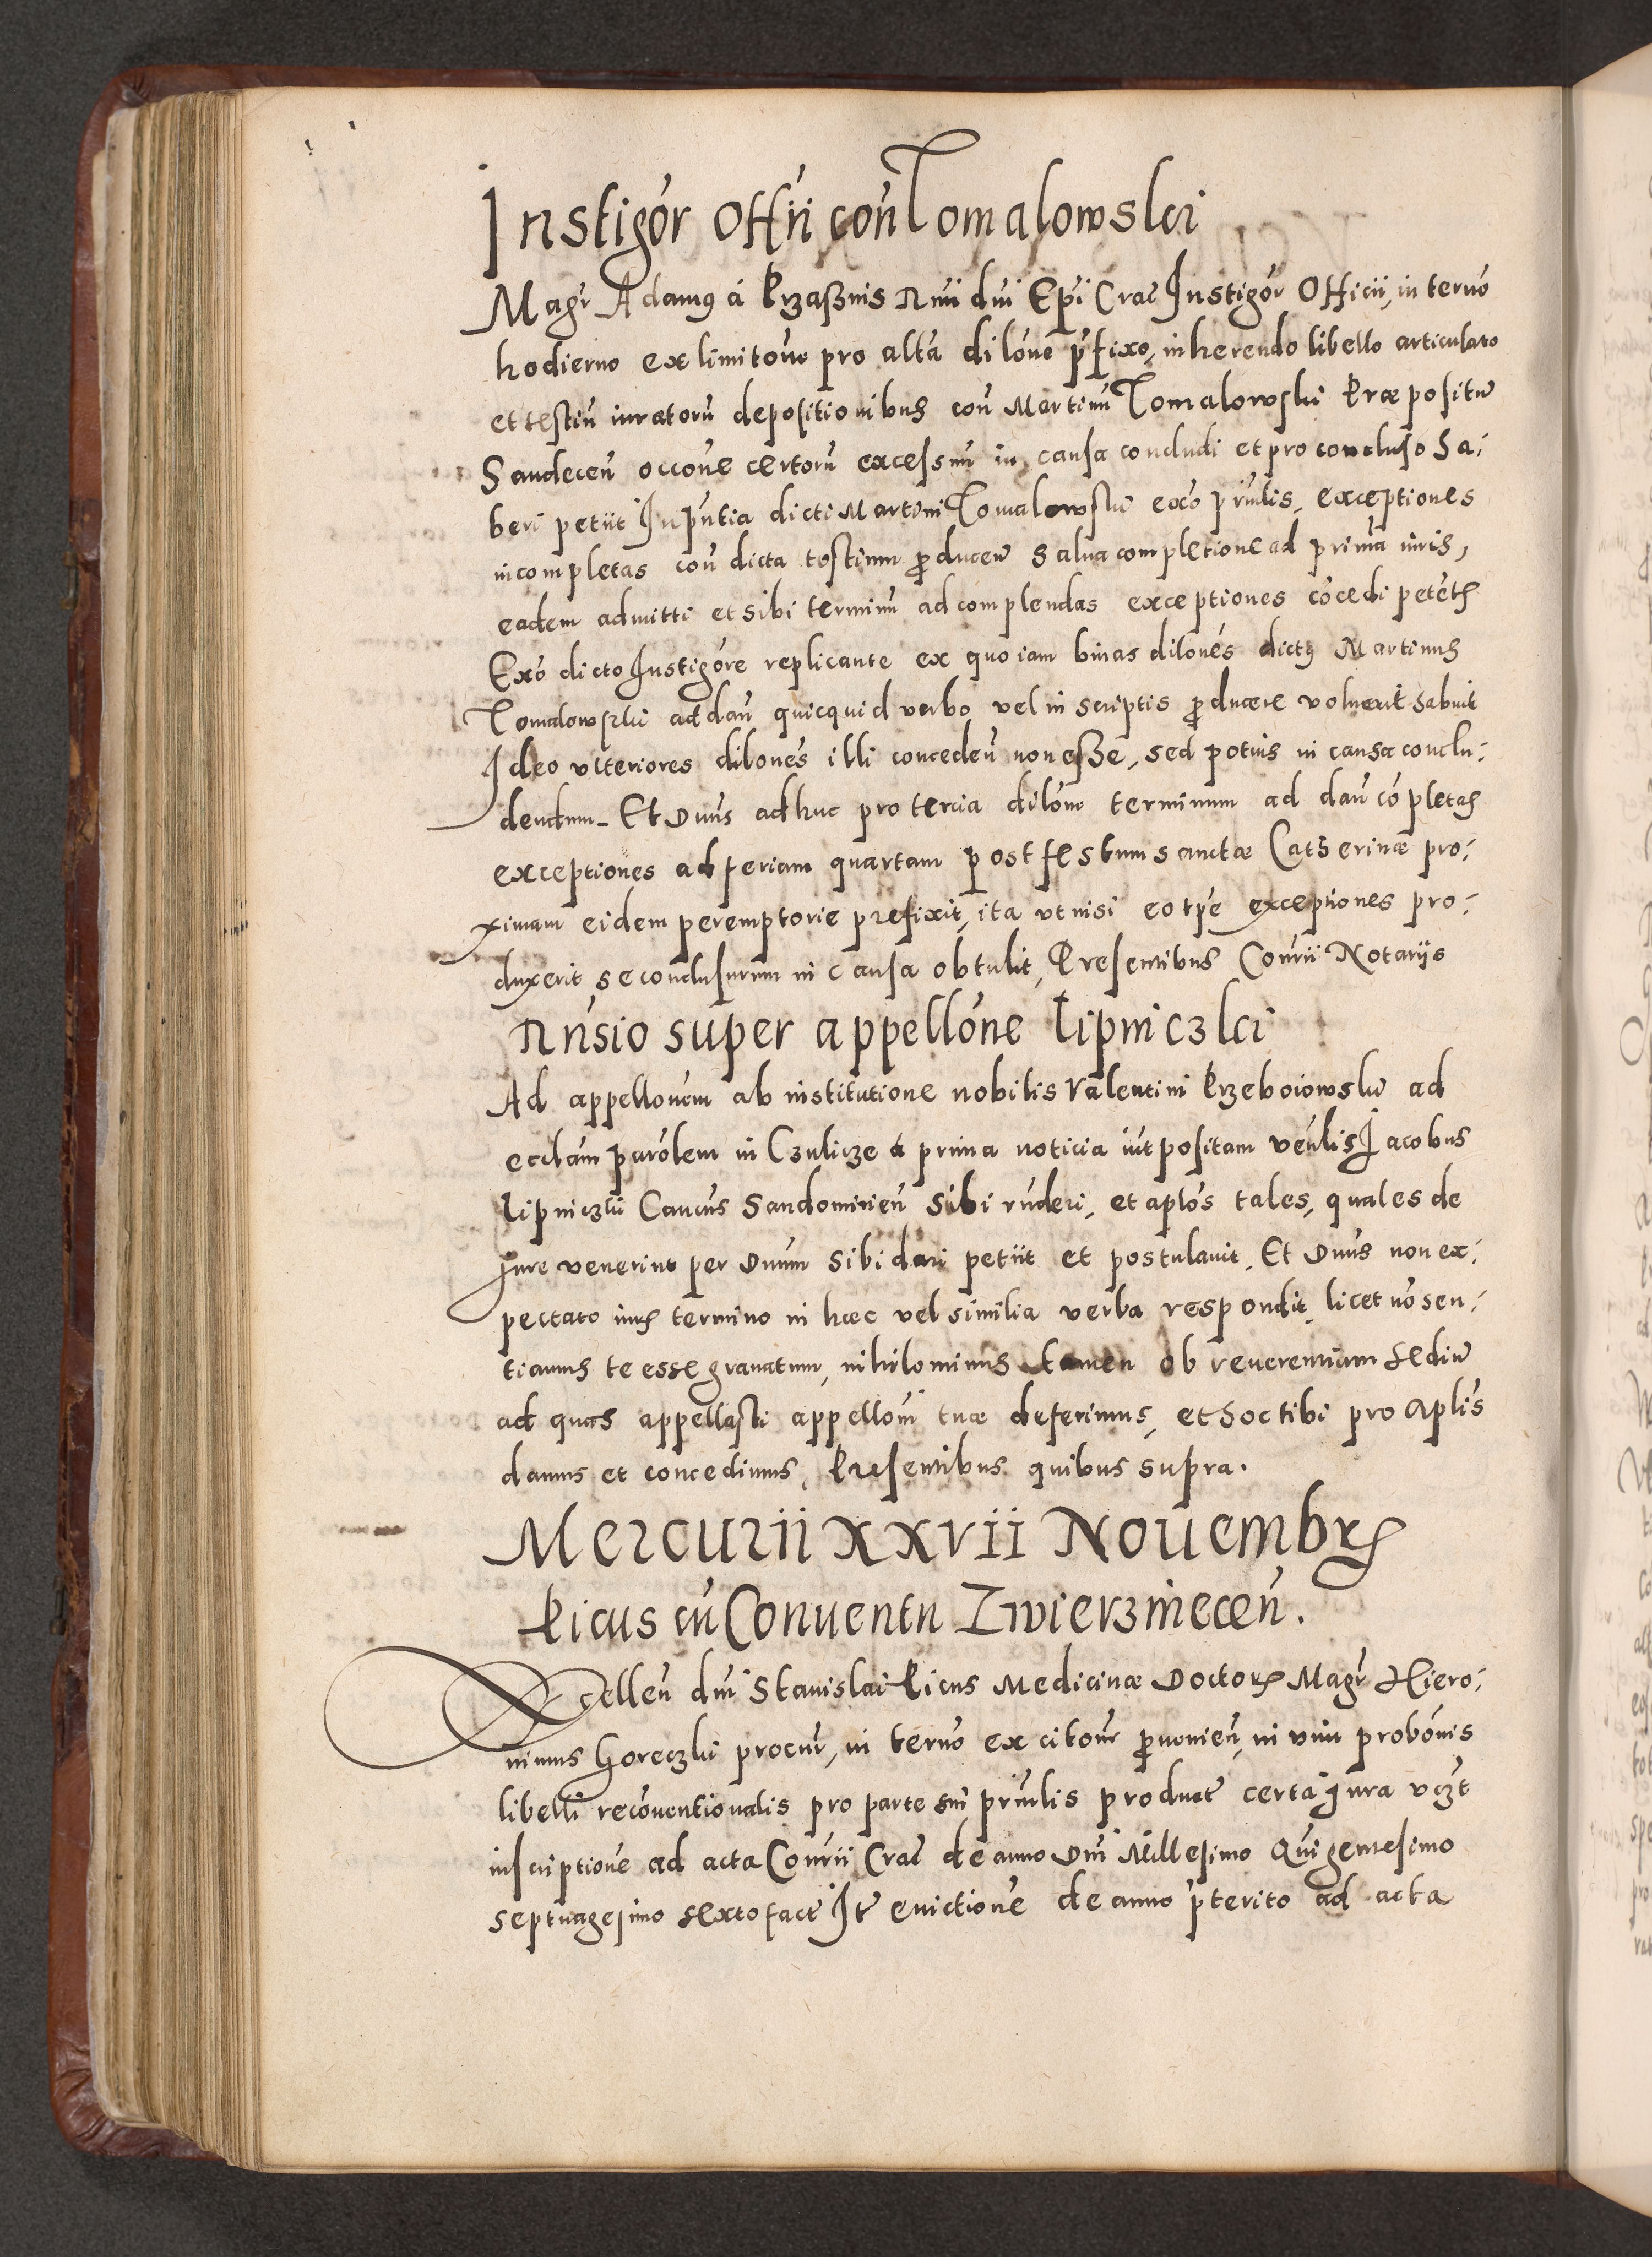 Instigor Offii con Tomalowski
Magr Adamus à Krzassnis Rmi dni Epi Crac Instigor Officii, in terno
hodierno ex limitone pro altera dilone prefixo, inherendo libello articulato
et testiu iuratoru depositionibus con Martinu Tomalowski Præpositu
Sandecen occone certoru excessuu in causa concludi et pro concluso ha-
beri petiit In pntia dicti Martini Tomalowski exo prindlis, exceptiones
incompletas con dicta testium producen salua completione ad prima iuris,
eadem admitti et sibi terminu ad complendas exceptiones cocedi petetis
Exo dicto Instigore replicante ex quo iam binas dilones dictus Martinus
Tomalowski ad dan quicquid verbo vel in scriptis producere voluerit habuit
Ideo vlteriores dilones illi conceden non esse, sed potius in causa conclu-
dendum - Et Dnus adhuc pro tercia dilone terminum ad dan copletas
exceptiones ad feriam quartam post festum sanctæ Catherinæ pro-
ximam eidem peremptorie prefixit, ita vt nisi eo tpe exceptiones pro-
duxerit se conclusurum in causa obtulit, Presentibus Conrii Notarijs
Rnsio super appellone Lipniczki
Ad appellonem ab institutione nobilis Valentini Krzeboiowski ad
ecclam parolem in Czulicze à prima noticia iut positam venlis Iacobus
Lipniczki Cancus Sandomirien sibi rnderi, et aplos tales, quales de
jure venerint per Dnum sibi dari petiit et postulauit. Et Dnus non ex-
pectato iuris termino in hæc vel similia verba respondit, licet no sen-
tiamus te esse grauatum, nihilominus tamen ob reuerentiam sediu
ad quas appellasti appelloni tuæ deferimus, et hoc tibi pro Aplis
damus et concedimus, Presentibus quibus supra.
Mercurii XXVII Nouembris
Picus cu Conuentu Zwierzinecen.
Excellen dni Stanislai Picus Medicinæ Doctoris Magr Hiero-
nimus Goreczki procur, in terno ex citone prouenien, in vim probonis
libelli reconuentionalis pro parte sui prindlis producit certa jura vczt
inscriptione ad acta Conrii Crac de anno Dni Millesimo Quigentesimo
septuagesimo sexto fact It euictione de anno pterito ad acta